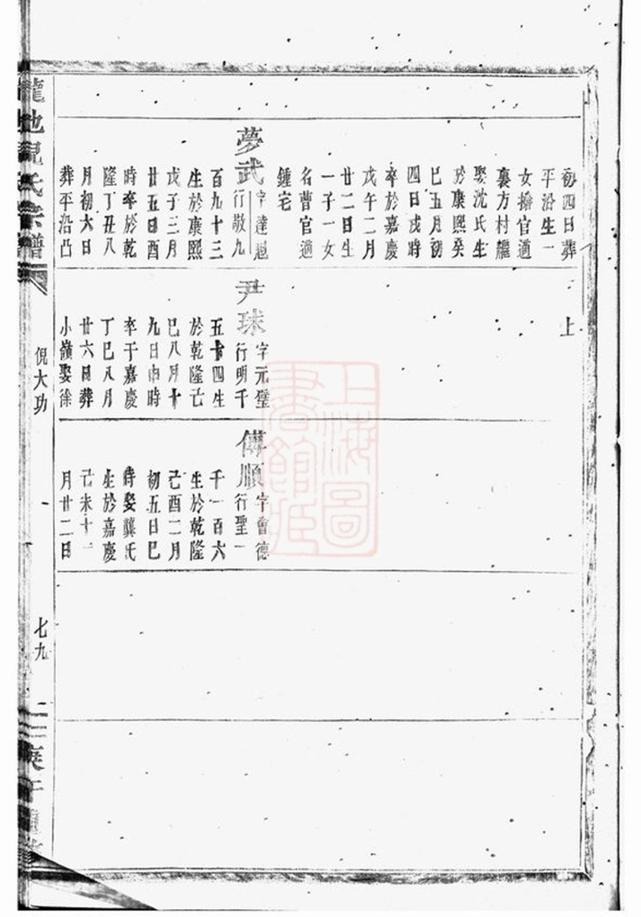 初四日葬
平沿生一
女擡官適
裏方村龍
娶沈氏生
於康熙癸
巳五月初
四日戌時
卒於嘉慶
戊午二月
廿二日生
一子一女
名曹官適
鍾宅
夢武
行敬九
百九十三
生於康熙
戊子三月
廿五日酉
時卒於乾
隆丁丑八
月初六日
葬平沿凸
上
尹球
字元璧
行明千
五十四生
於乾隆己
巳八月十
九日申時
卒于嘉慶
丁巳八月
廿六日葬
小嶺娶徐
傳順
字會德
行聖一
千一百六
生於乾隆
己酉二月
初五日巳
時娶龔氏
生於嘉慶
己未十一
月廿二日
龍池倪氏宗譜
倪大功
七九
上海圖書館藏